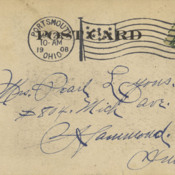 PORTSMOUTH
10-AM
1908
OHIO
POST CARD
Mrs. Pearl Lyons.
Mich ave.
Hammond.